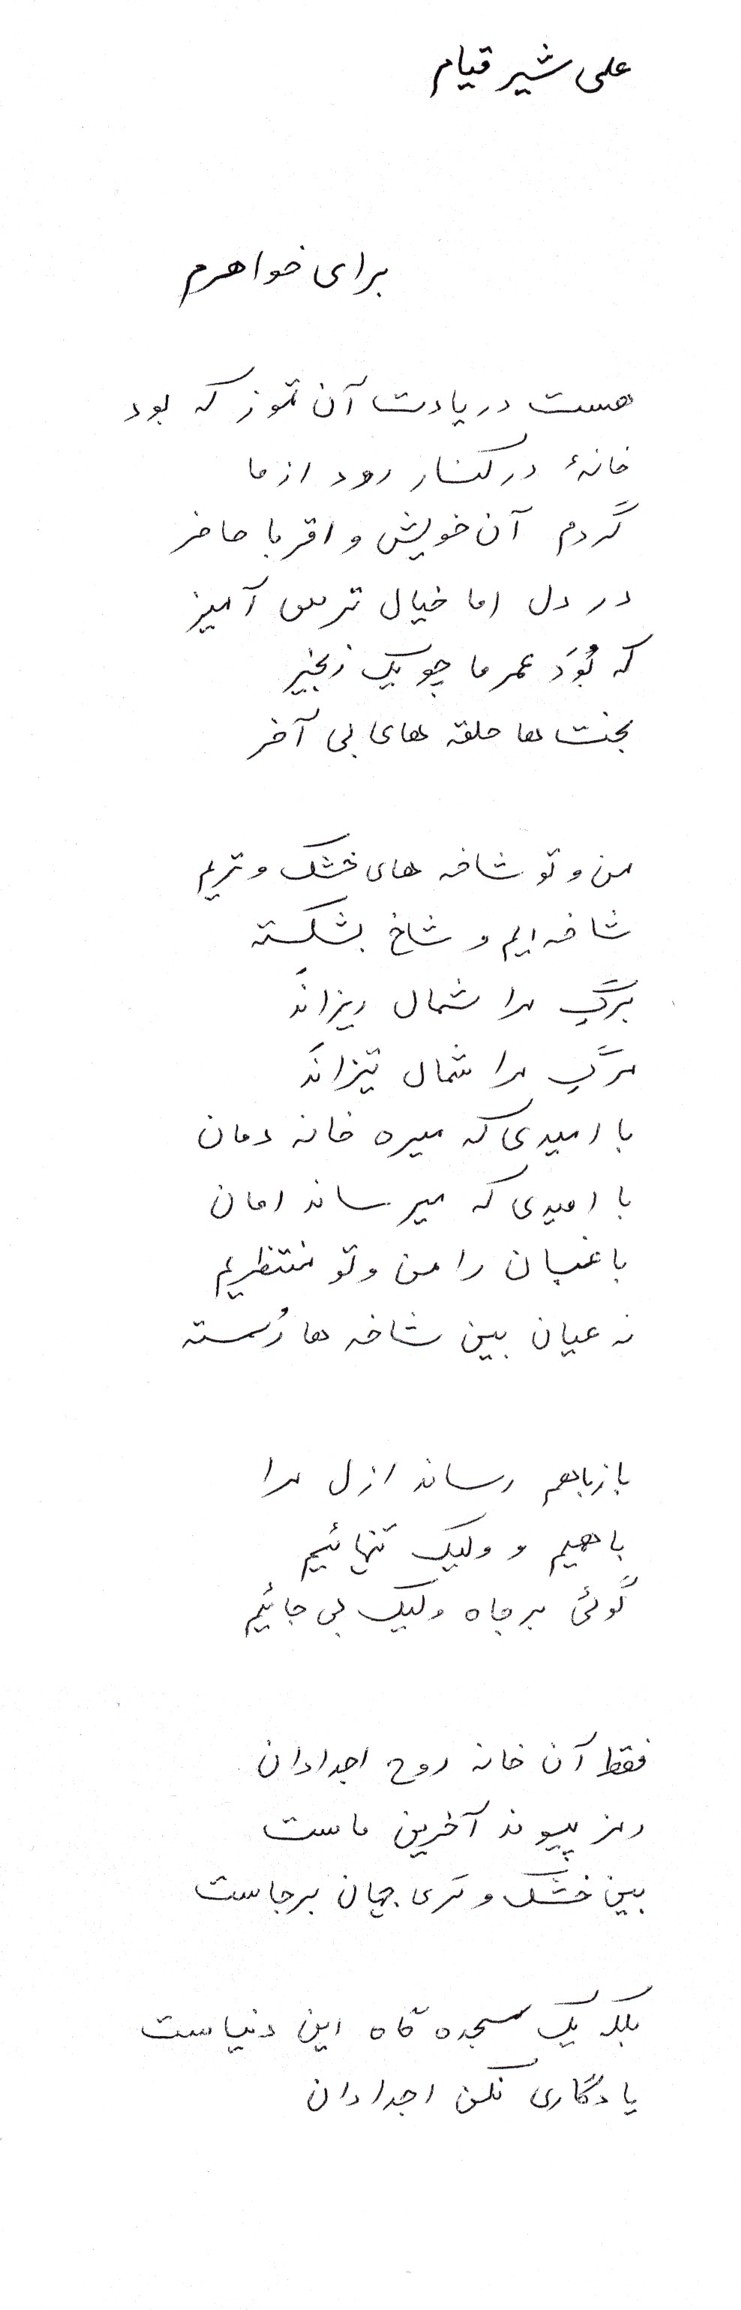 علی شیر قیام
برای خواهرم
هست در یادت آن تموز که بود
خانهٔ در کنار رود از ما
گردم آن خویش و اقربا حاضر
در دل اما خیال ترس آمیز
که بُوَد عمر ما چو یک زنجیر
بخت ها حلقه های بی آخر
من و تو شاخه های خشک و تریم
شاخه ایم و شاخ بشکسته
برگِ مرا شمال ریزانَد
مرگِ مرا شمال تیزانَد
با امیدی که میره خانه دمان
با امیدی که میرساند امان
باغبان را من و تو منتظریم
نه عیان بین شاخه ها رُسته
باز باهم رساند ازل مرا
با همیم و ولیک تنهائیم
گوئی برجاه ولیک بی جائیم
فقط آن خانه روح اجدادان
رمز پیوند آخرین ماست
بین خشک و تری جهان برجاست
بلکه یک سجده گاه این دنیاست
یادگاری نکن اجدادان